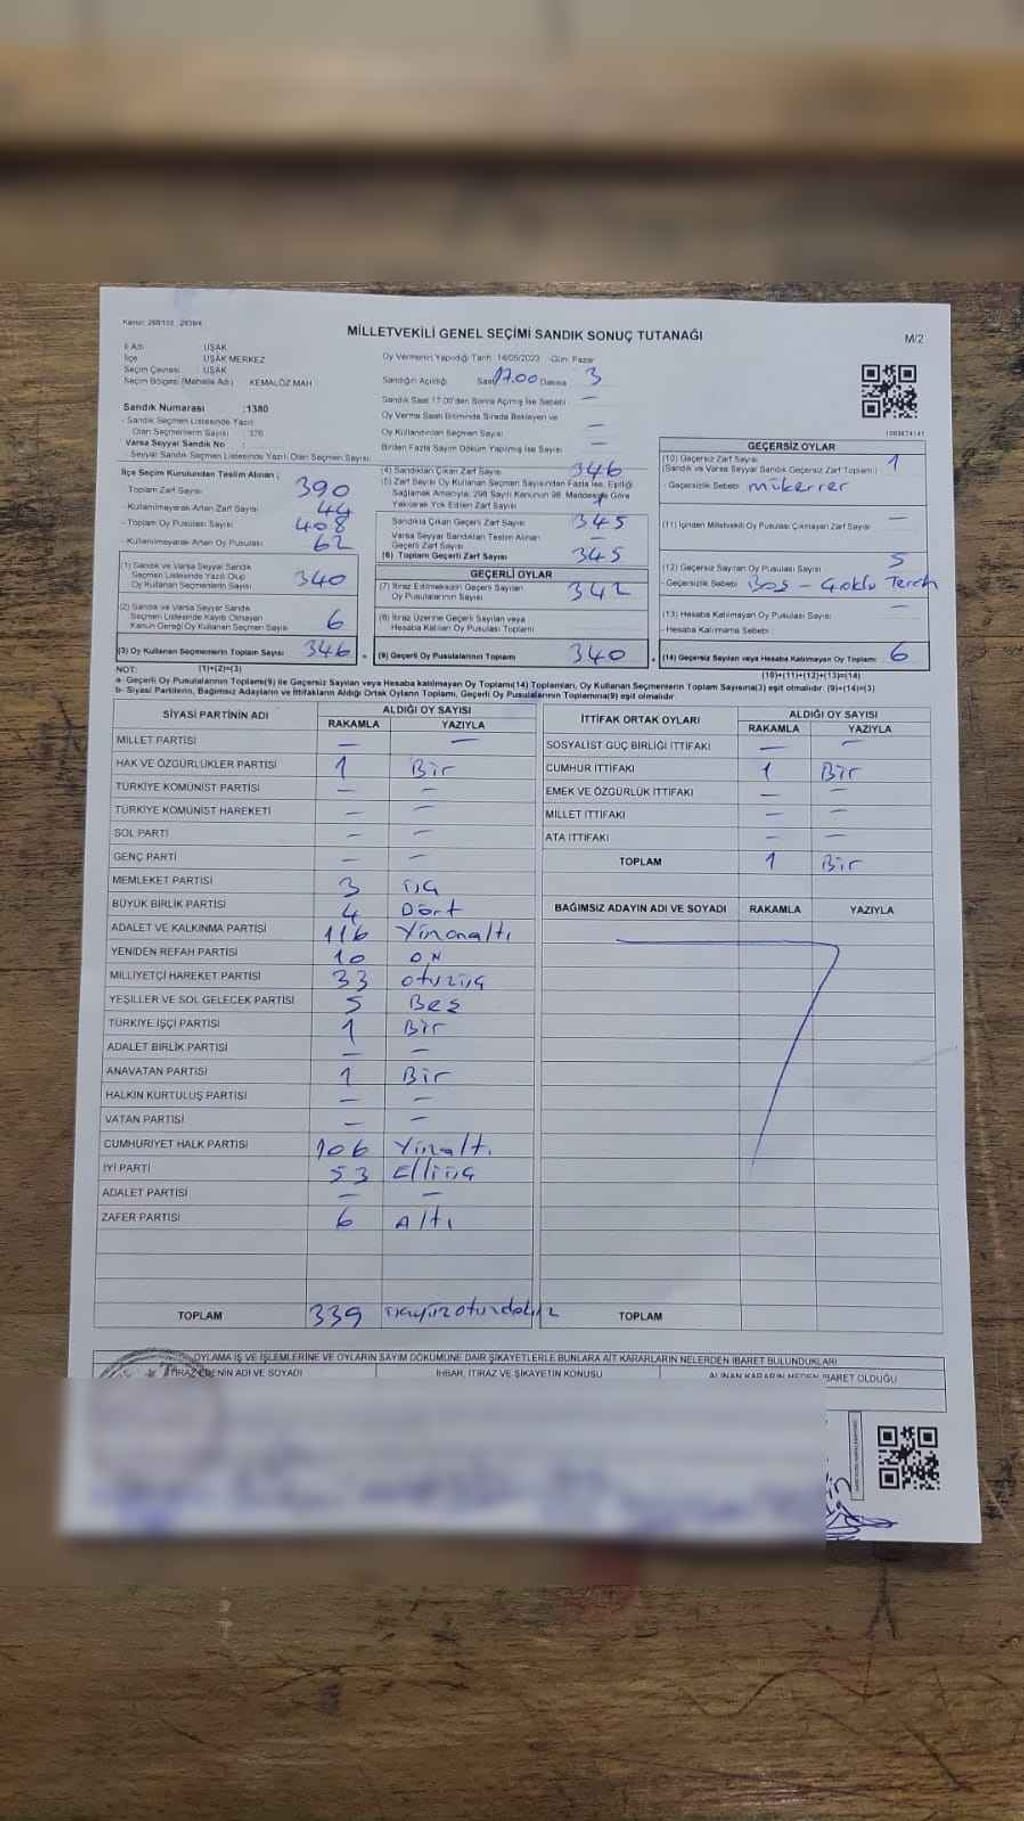 MİLLETVEKİLİ GENEL SEÇİMİ SANDIK SONUÇ TUTANAĞI
M/2
İl Adı : UŞAK
İlçe : UŞAK MERKEZ
Seçim Çevresi : UŞAK
Seçim Bölgesi (Mahalle Adı) : KEMALÖZ MAH
Sandık Numarası :1380
Sandık Seçmen Listesinde Yazılı
Olan Seçmenlerin Sayısı : 376
Varsa Seyyar Sandık No :
Seyyar Sandık Seçmen Listesinde Yazılı Olan Seçmen Sayısı:
Oy Vermenin Yapıldığı Tarih: 14/05/2023 Gün: Pazar
Sandığın Açıldığı Saat 17.00 Dakika 3
Sandık Saat 17:00'den Sonra Açılmış İse Sebebi —
Oy Verme Saati Bitiminde Sırada Bekleyen ve
Oy Kullandırılan Seçmen Sayısı —
Birden Fazla Sayım Döküm Yapılmış İse Sayısı —
İlçe Seçim Kurulundan Teslim Alınan;
Toplam Zarf Sayısı 390
Kullanılmayarak Artan Zarf Sayısı 44
Toplam Oy Pusulası Sayısı 408
Kullanılmayarak Artan Oy Pusulası 62
(1) Sandık ve Varsa Seyyar Sandık
Seçmen Listesinde Yazılı Olup
Oy Kullanan Seçmenlerin Sayısı 340
(2) Sandık ve Varsa Seyyar Sandık
Seçmen Listesinde Kayıtlı Olmayan
Kanun Gereği Oy Kullanan Seçmen Sayısı 6
(3) Oy Kullanan Seçmenlerin Toplam Sayısı 346
(1)+(2)=(3)
(4) Sandıktan Çıkan Zarf Sayısı 346
(5) Zarf Sayısı Oy Kullanan Seçmen Sayısından Fazla İse, Eşitliği
Sağlamak Amacıyla, 298 Sayılı Kanunun 98. Maddesine Göre
Yakılarak Yok Edilen Zarf Sayısı
Sandıkta Çıkan Geçerli Zarf Sayısı 345
Varsa Seyyar Sandıktan Teslim Alınan
Geçerli Zarf Sayısı —
(6) Toplam Geçerli Zarf Sayısı 345
GEÇERLİ OYLAR
(7) İtiraz Edilmeksizin Geçerli Sayılan
Oy Pusulalarının Sayısı 342
(8) İtiraz Üzerine Geçerli Sayılan veya
Hesaba Katılan Oy Pusulası Toplamı
(9) Geçerli Oy Pusulalarının Toplamı 340
GEÇERSİZ OYLAR
(10) Geçersiz Zarf Sayısı
(Sandık ve Varsa Seyyar Sandık Geçersiz Zarf Toplamı) 1
Geçersizlik Sebebi mükerrer
(11) İçinden Milletvekili Oy Pusulası Çıkmayan Zarf Sayısı —
(12) Geçersiz Sayılan Oy Pusulası Sayısı 5
Geçersizlik Sebebi Boş - Çoklu Tercih
(13) Hesaba Katılmayan Oy Pusulası Sayısı —
Hesaba Katılmama Sebebi
(14) Geçersiz Sayılan veya Hesaba Katılmayan Oy Toplamı 6
(10)+(11)+(12)+(13)=(14)
NOT:
a- Geçerli Oy Pusulalarının Toplamı(9) ile Geçersiz Sayılan veya Hesaba katılmayan Oy Toplamı(14) Toplamları, Oy Kullanan Seçmenlerin Toplam Sayısına(3) eşit olmalıdır. (9)+(14)=(3)
b- Siyasi Partilerin, Bağımsız Adayların ve İttifakların Aldığı Ortak Oyların Toplamı, Geçerli Oy Pusulalarının Toplamına(9) eşit olmalıdır
SİYASİ PARTİNİN ADI ALDIĞI OY SAYISI
RAKAMLA YAZIYLA
MİLLET PARTİSİ — —
HAK VE ÖZGÜRLÜKLER PARTİSİ 1 Bir
TÜRKİYE KOMÜNİST PARTİSİ — —
TÜRKİYE KOMÜNİST HAREKETİ — —
SOL PARTİ — —
GENÇ PARTİ — —
MEMLEKET PARTİSİ 3 üç
BÜYÜK BİRLİK PARTİSİ 4 Dört
ADALET VE KALKINMA PARTİSİ 116 Yüzonaltı
YENİDEN REFAH PARTİSİ 10 ON
MİLLİYETÇİ HAREKET PARTİSİ 33 otuzüç
YEŞİLLER VE SOL GELECEK PARTİSİ 5 Beş
TÜRKİYE İŞÇİ PARTİSİ 1 Bir
ADALET BİRLİK PARTİSİ — —
ANAVATAN PARTİSİ 1 Bir
HALKIN KURTULUŞ PARTİSİ — —
VATAN PARTİSİ — —
CUMHURİYET HALK PARTİSİ 106 Yüzaltı
İYİ PARTİ 53 Elliüç
ADALET PARTİSİ — —
ZAFER PARTİSİ 6 Altı
TOPLAM 339 üçyüzotuzdokuz
İTTİFAK ORTAK OYLARI ALDIĞI OY SAYISI
RAKAMLA YAZIYLA
SOSYALİST GÜÇ BİRLİĞİ İTTİFAKI — —
CUMHUR İTTİFAKI 1 Bir
EMEK VE ÖZGÜRLÜK İTTİFAKI — —
MİLLET İTTİFAKI — —
ATA İTTİFAKI — —
TOPLAM 1 Bir
BAĞIMSIZ ADAYIN ADI VE SOYADI RAKAMLA YAZIYLA
TOPLAM
OYLAMA İŞ VE İŞLEMLERİNE VE OYLARIN SAYIM DÖKÜMÜNE DAİR ŞİKAYETLERLE BUNLARA AİT KARARLARIN NELERDEN İBARET BULUNDUKLARI
İTİRAZ EDENİN ADI VE SOYADI İHBAR, İTİRAZ VE ŞİKAYETİN KONUSU ALINAN KARARIN NEDEN İBARET OLDUĞU